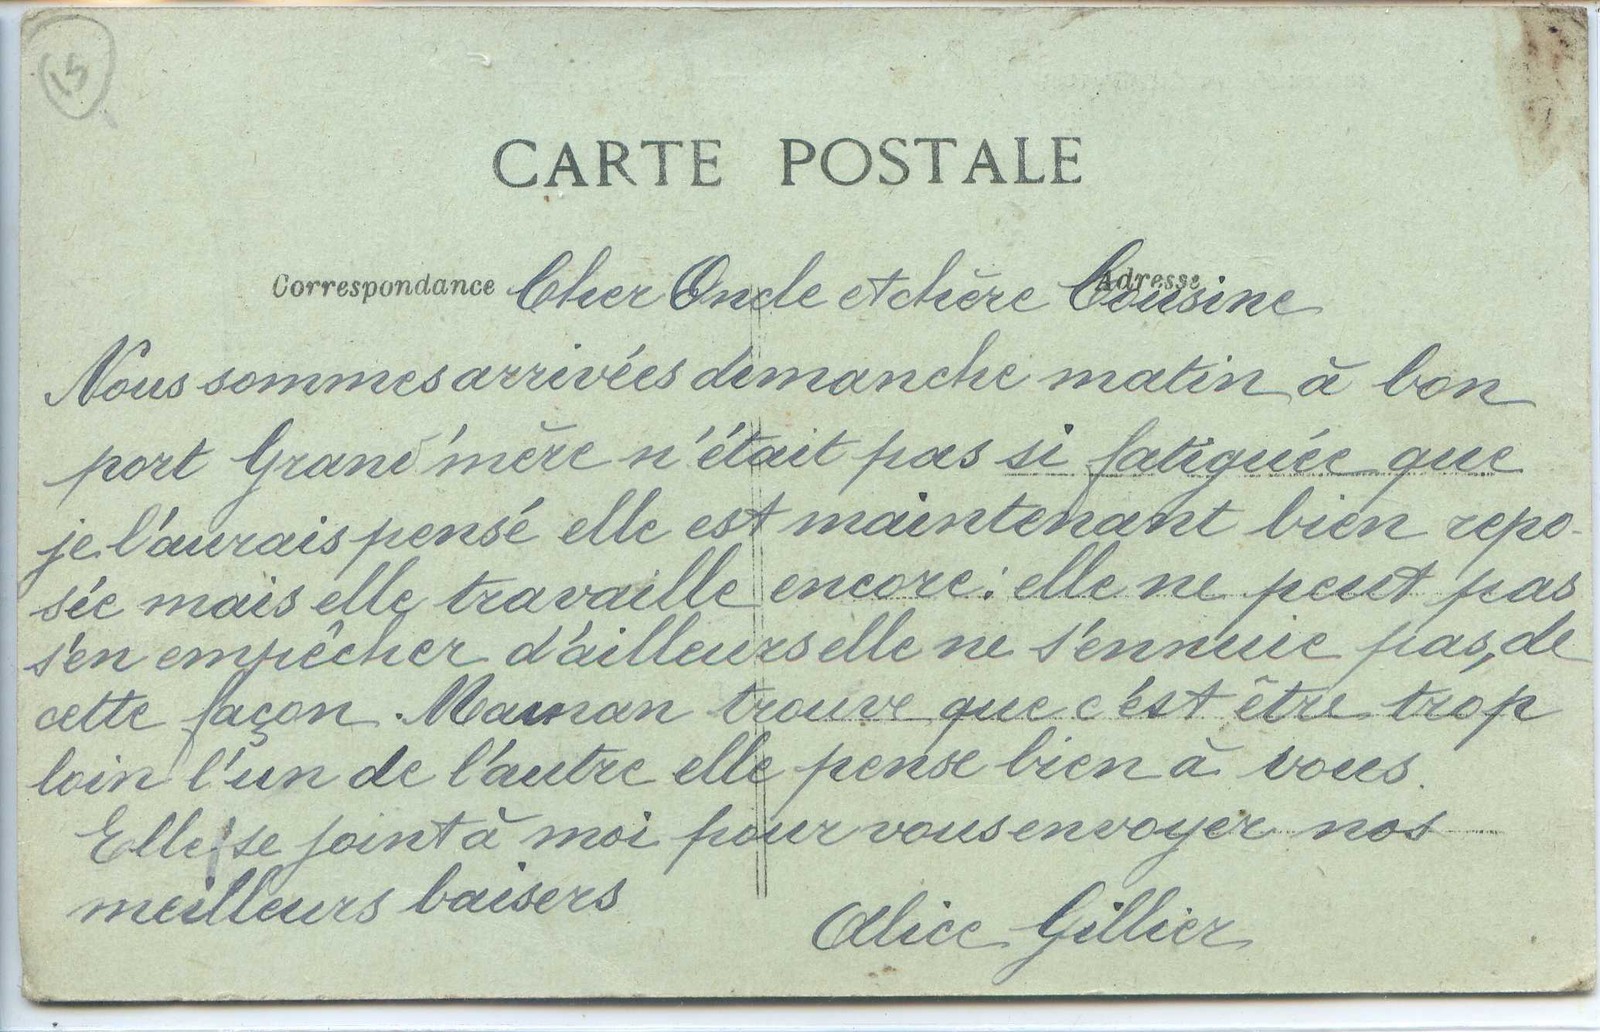 15
CARTE POSTALE
Correspondance
Adresse
Cher Oncle et chère Cousine
Nous sommes arrivées dimanche matin à bon
port Grand'mère n'était pas si fatiguée que
je l'aurais pensé elle est maintenant bien repo-
sée mais elle travaille encore: elle ne peut pas
s'en empêcher d'ailleurs elle ne s'ennuie pas, de
cette façon. Maman trouve que c'est être trop
loin l'un de l'autre elle pense bien à vous.
Elle se joint à moi pour vous envoyer nos
meilleurs baisers
Alice Gillier